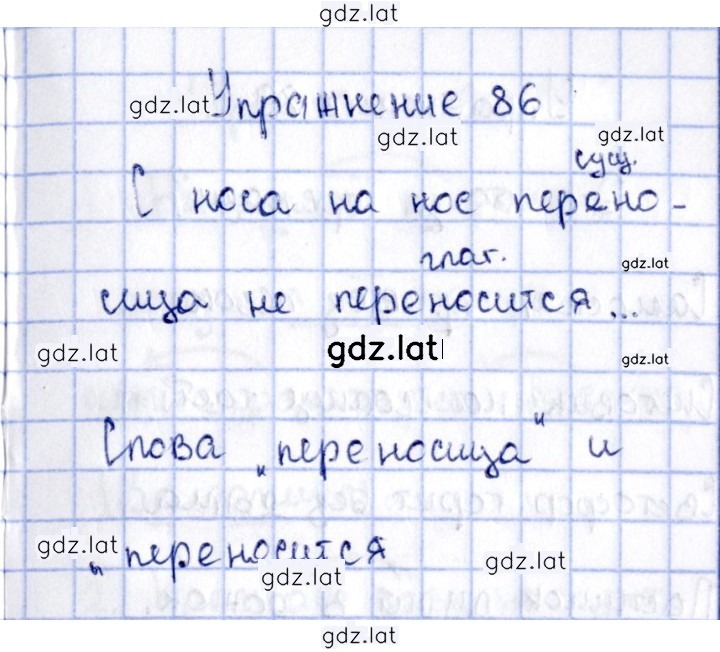 gdz.lat
Упражнение 86
gdz.lat
gdz.lat
gdz.lat
сущ.
С носа на нос перено-
глаг.
gdz.lat
сица не переносится...
gdz.lat
gdz.lat
gdz.lat
Слова „переносица" и
gdz.lat
„переносится
gdz.lat
gdz.lat
gdz.lat